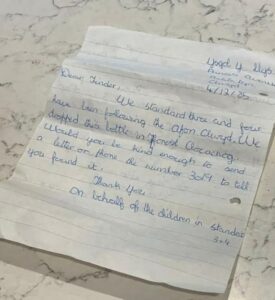 4/12/95
Dear Finder,
We standard three and four
have been following the Afon Clwyd. We
dropped this bottle in
Would you be kind enough to send
a letter or phone the number 3019 to tell
you found it.
Thank You
On behalf of the children in standar
3+4